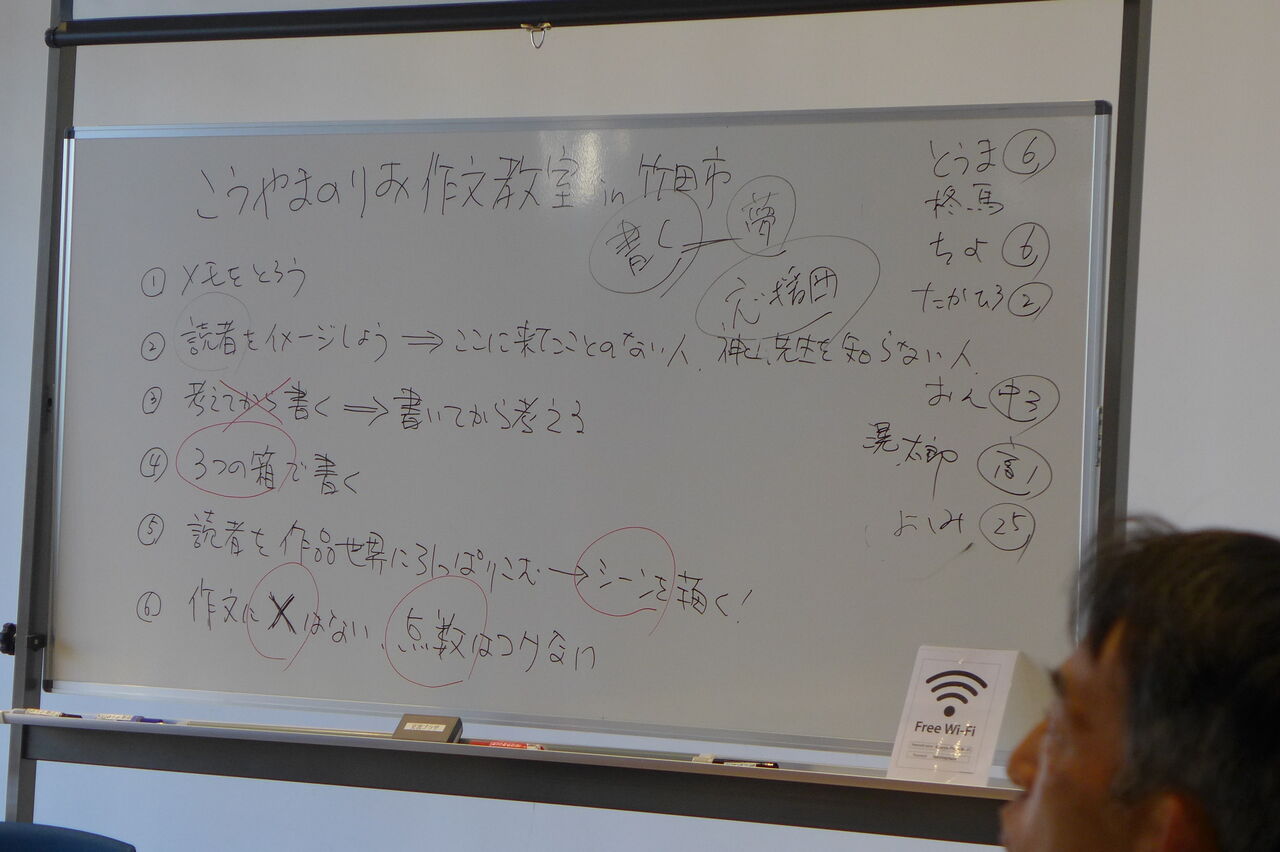 こうやまのりお作文教室 in 竹田市
書く 夢
応援団
① メモをとろう
② 読者をイメージしよう ⇒ ここに来たことのない人、神山先生を知らない人
③ 考えてから書く ⇒ 書いてから考える
④ 3つの箱で書く
⑤ 読者を作品世界に引っぱりこむ → シーンを描く!
⑥ 作文に×はない、点数はつけない
とうま 6
柊馬
ちよ 6
たかひろ 2
おん 中3
晃太郎 高1
よしみ 25
Free Wi-Fi